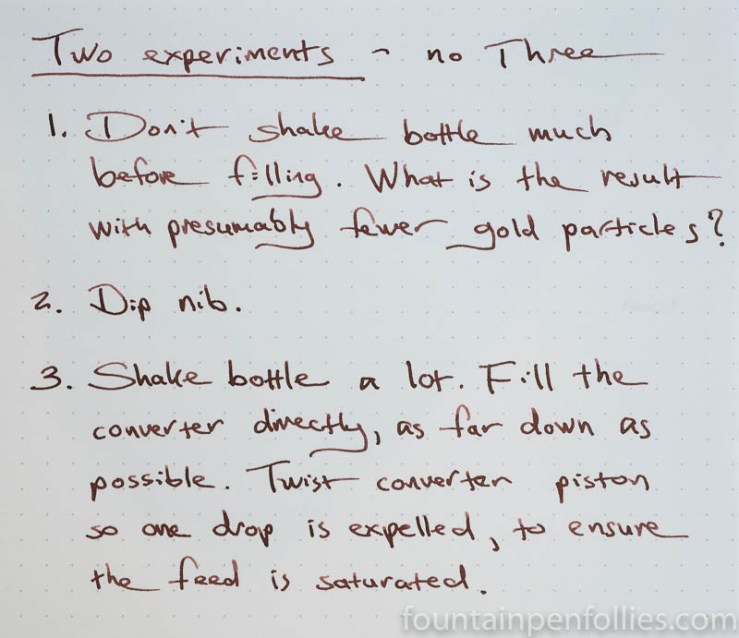 Two experiments - no Three
1. Don't shake bottle much
before filling. What is the result
with presumably fewer gold particles?
2. Dip nib.
3. Shake bottle a lot. Fill the
converter directly, as far down as
possible. Twist converter piston
so one drop is expelled, to ensure
the feed is saturated.
fountainpenfollies.com